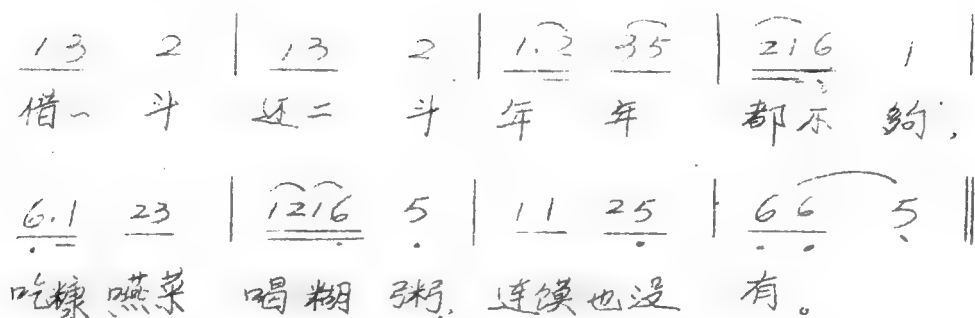 13 2 | 13 2 | 1.2 35 | 216 1 |
借一 斗 还二 斗 年 年 都不 够,
6.1 23 | 1216 5 | 11 25 | 66 5 ‖
吃糠 咽菜 喝糊 粥, 连馍也没 有。